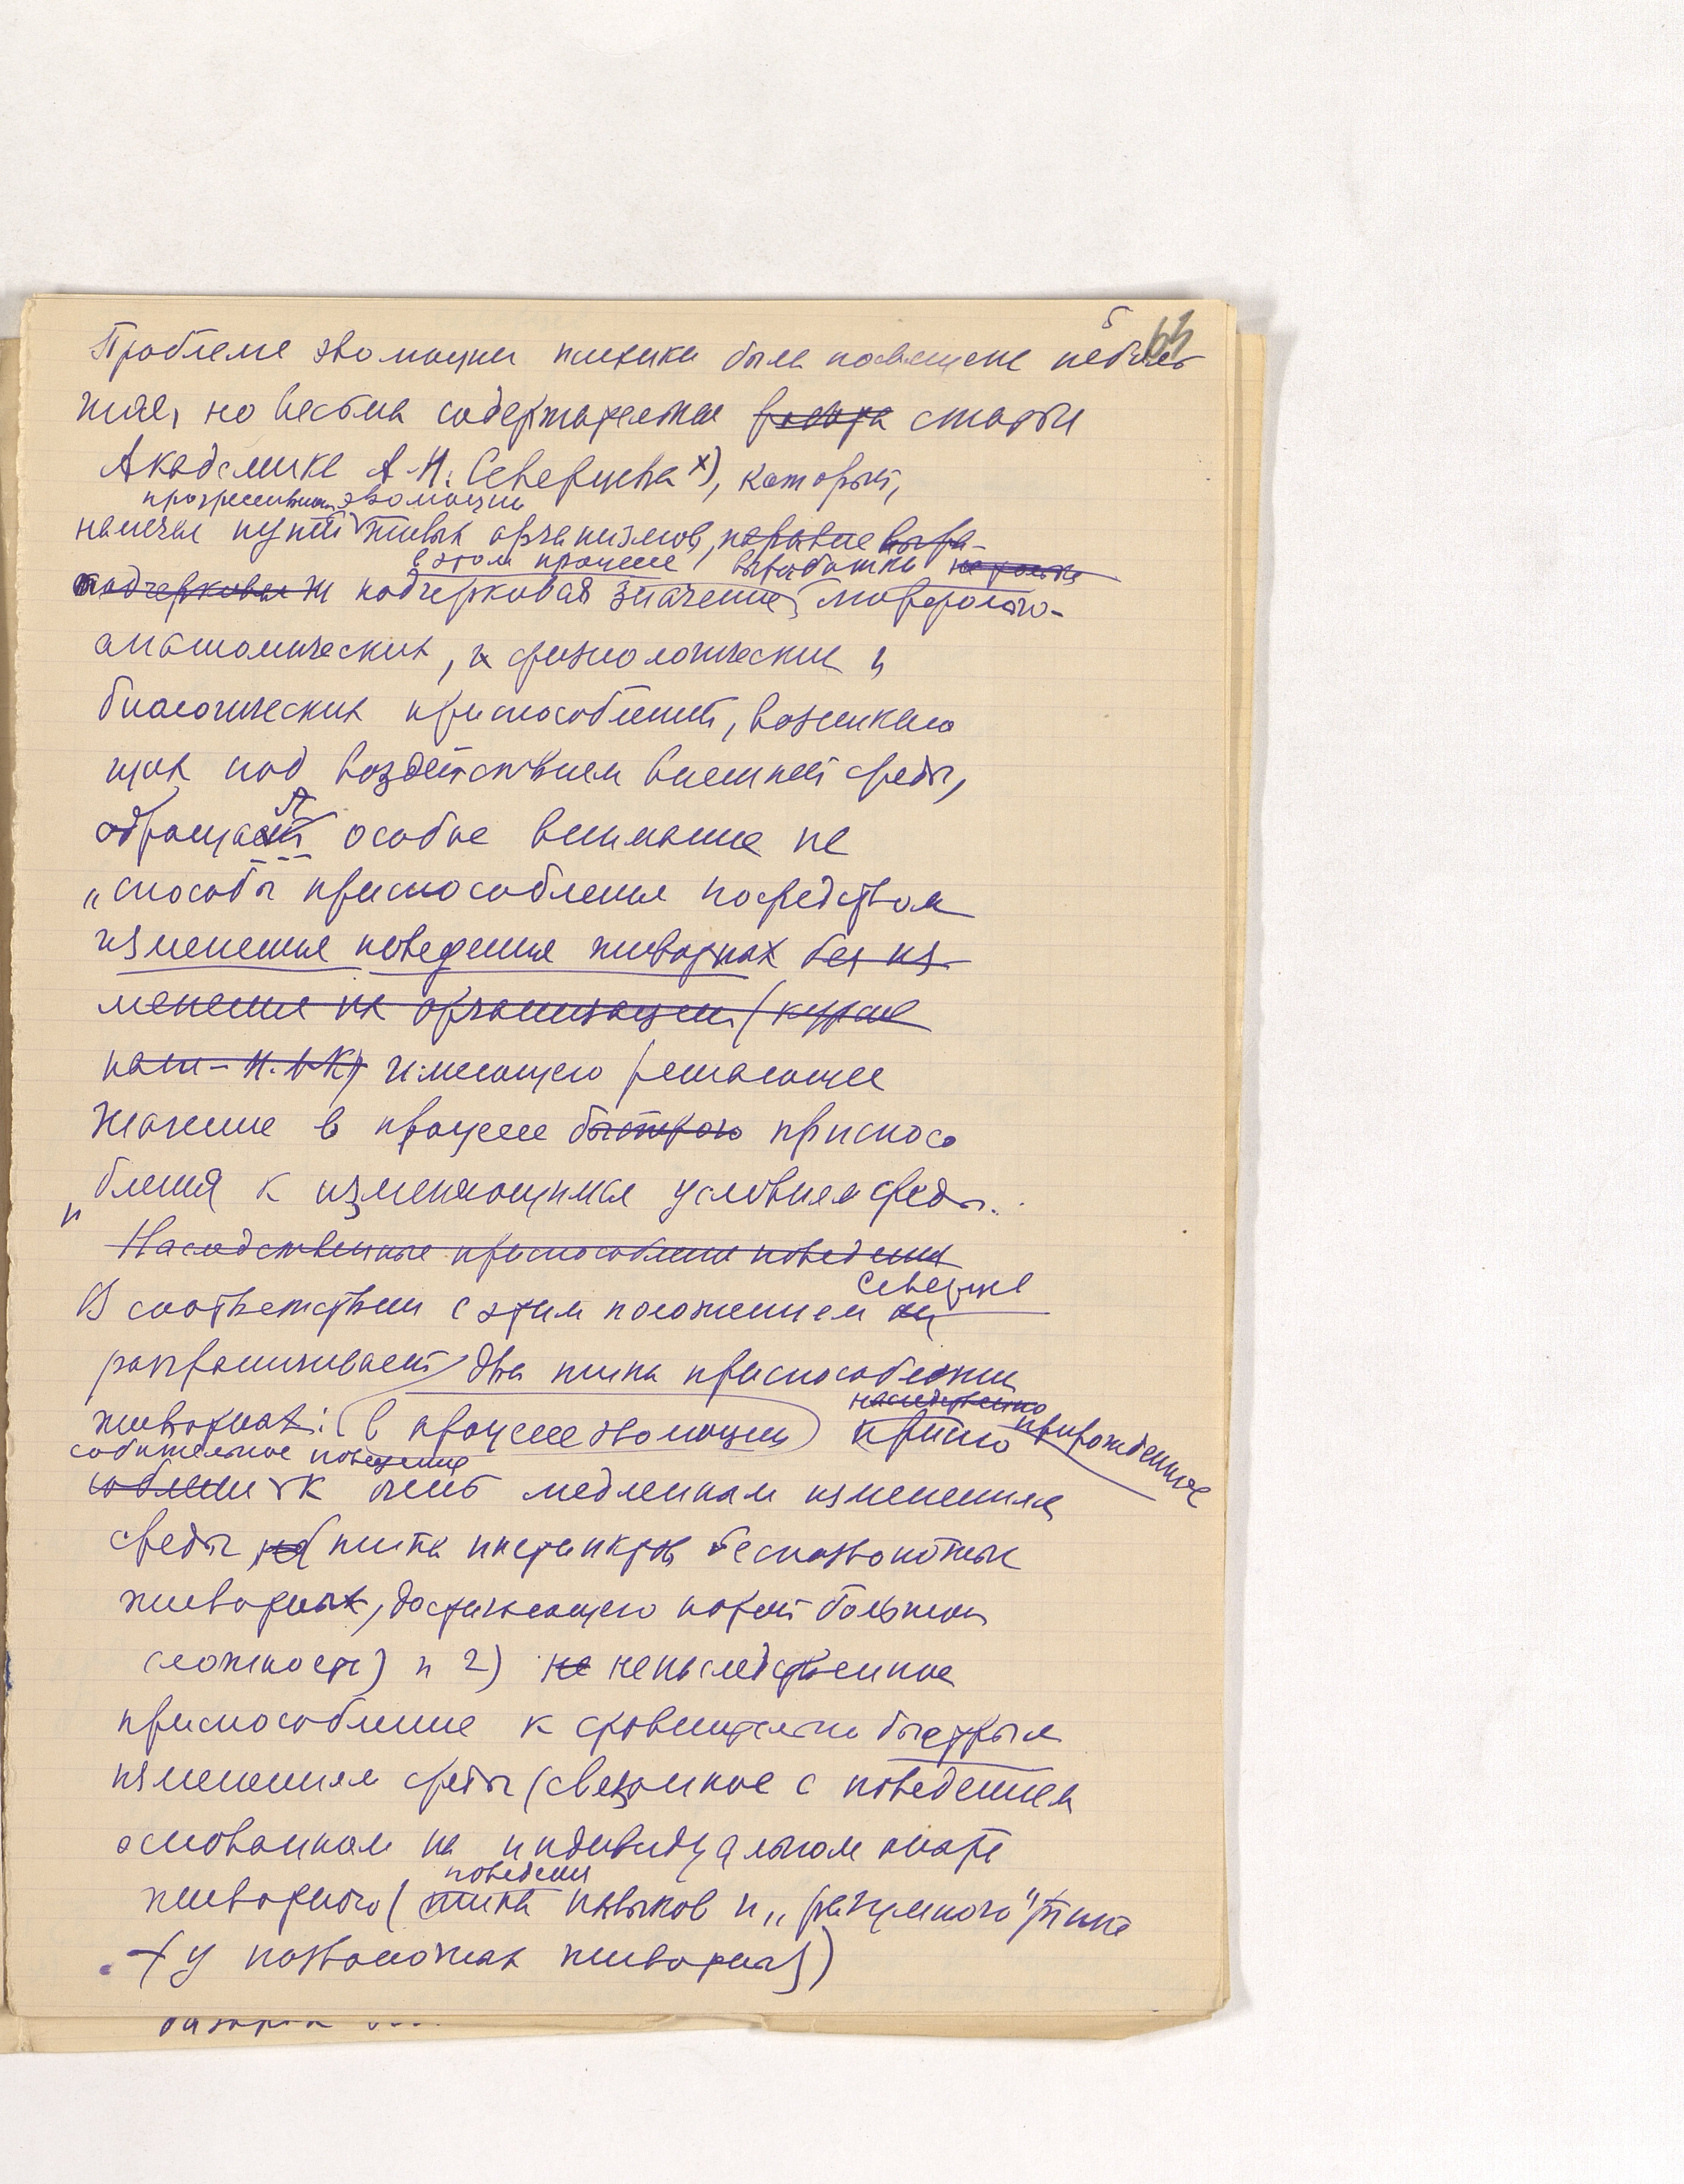 5
63
Проблеме эволюции психики была посвящена неболь
шая, но весьма содержательная работа статья
Академика А.Н. Северцева х), который,
прогрессивной эволюции
намечая путей живых организмов, наравне выра-
в этом процессе выработки не только
подчеркивая подчеркивая значение морфолого-
анатомических, и физиологических и
биологических приспособлений, возникаю
щих под воздействием внешней среды,
обращает особое внимание на
„способы приспособления посредством
изменения поведения животных без из-
менения их организации (курсив
наш – Н.Л.К) имеющего решающее
значение в процессе быстрого приспосо
бления к изменяющимся условиям среды.
Наследственные приспособления поведения
Северцев
В соответствии с этим положением он
разграничивает два типа приспособления
наследственно
животных: (в процессе эволюции) приспо врожденное
собительное поведение
собление к очень медленным изменениям
среды типа инстинктов беспозвоночных
животных, достигающего порой большой
сложности) и 2) не ненаследственное
приспособление к сравнительно быстрым
изменениям среды (связанное с поведением
основанном на индивидуальном опыте
поведения
животного ( типа навыков и „разумного" типа
(у позвоночных животных)